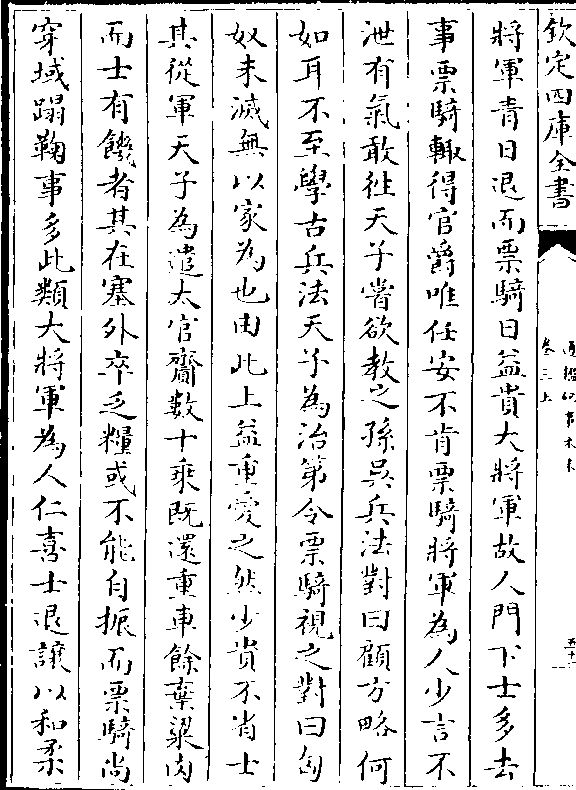 欽定四庫全書
通鑑紀事本末
卷三上
將軍青日退而票騎日益貴大將軍故人門下士多去
事票騎輙得官爵唯任安不肯票騎將軍為人少言不
泄有氣敢徃天子嘗欲教之孫吳兵法對曰顧方略何
如耳不至學古兵法天子為治第令票騎視之對曰匈
奴未滅無以家為也由此上益重愛之然少貴不省士
其從軍天子為遣太官齎數十乘既還重車餘棄粱肉
而士有饑者其在塞外卒乏糧或不能自振而票騎尚
穿域蹋鞠事多此類大將軍為人仁喜士退讓以和柔